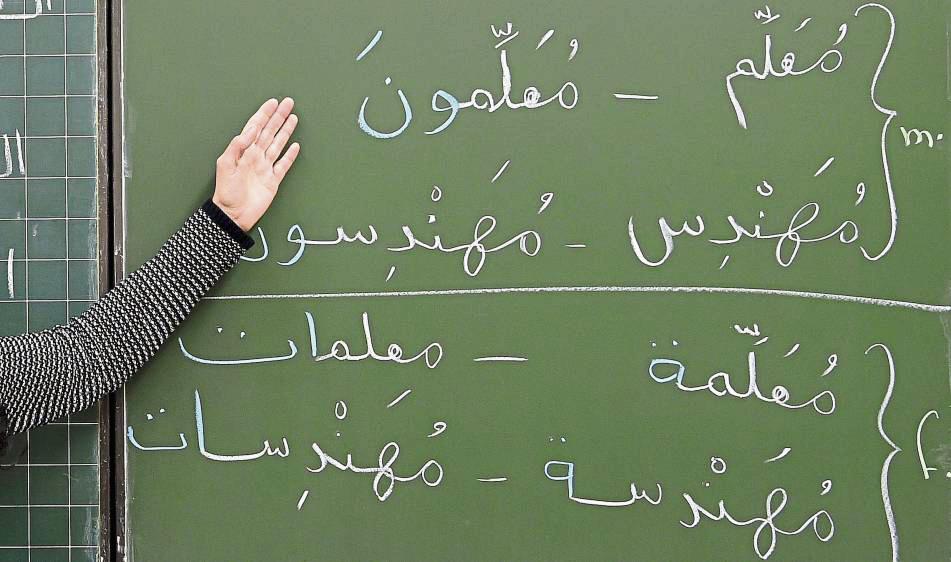 مُعَلِّم – مُعَلِّمونَ
m.
مُهَنْدِس – مُهَنْدِسون
مُعَلِّمة – معلمات
f.
مُهَنْدسة – مُهَنْدِسات